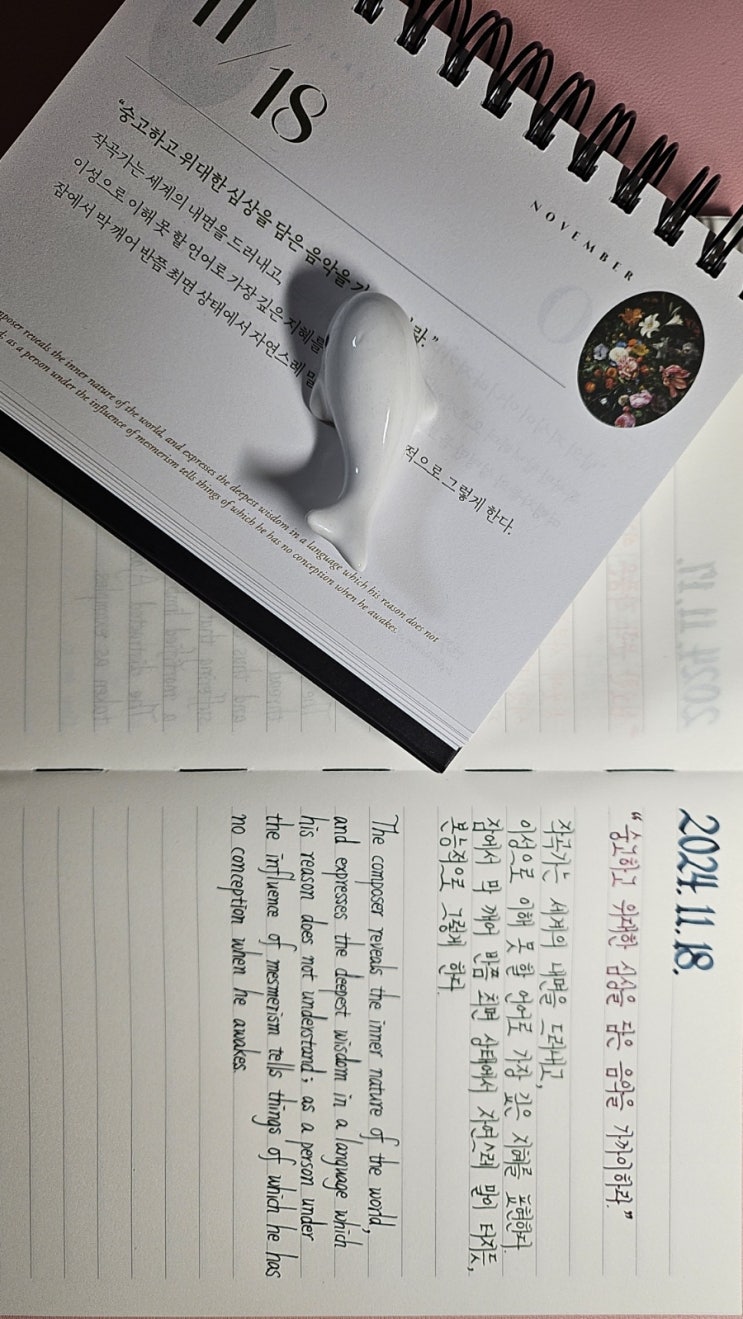 11/18
NOVEMBER
“숭고하고 위대한 심상을 담은 음악을
작곡가는 세계의 내면을 드러내고,
이성으로 이해 못 할 언어로 가장 깊은 지혜를
잠에서 막 깨어 반쯤 최면 상태에서 자연스레 말
적으로 그렇게 한다.
poser reveals the inner nature of the world, and expresses the deepest wisdom in a language which his reason does not
as a person under the influence of mesmerism tells things of which he has no conception when he awakes.
2024. 11. 18.
“숭고하고 위대한 심상을 담은 음악을 가까이하라.”
작곡가는 세계의 내면을 드러내고,
이성으로 이해 못 할 언어로 가장 깊은 지혜를 표현한다.
잠에서 막 깨어 반쯤 최면 상태에서 자연스레 말이 터지듯,
본능적으로 그렇게 한다.
The composer reveals the inner nature of the world,
and expresses the deepest wisdom in a language which
his reason does not understand; as a person under
the influence of mesmerism tells things of which he has
no conception when he awakes.